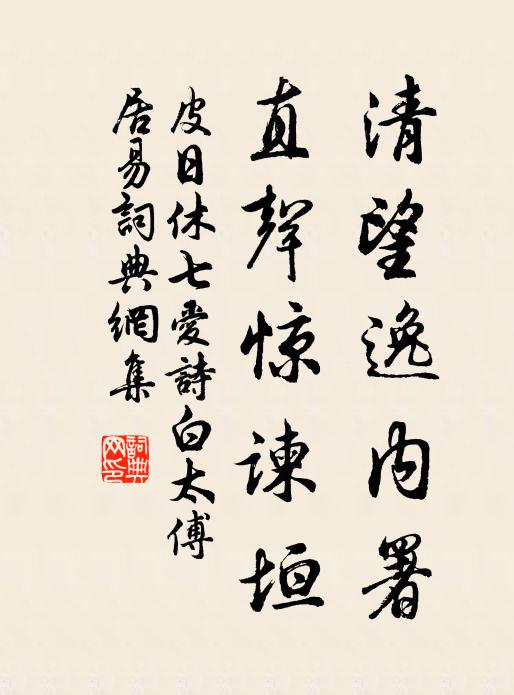 清望逸内署
直聲惊諫垣
皮日休七愛詩白太傅
居易詞典網集
詞典
网印